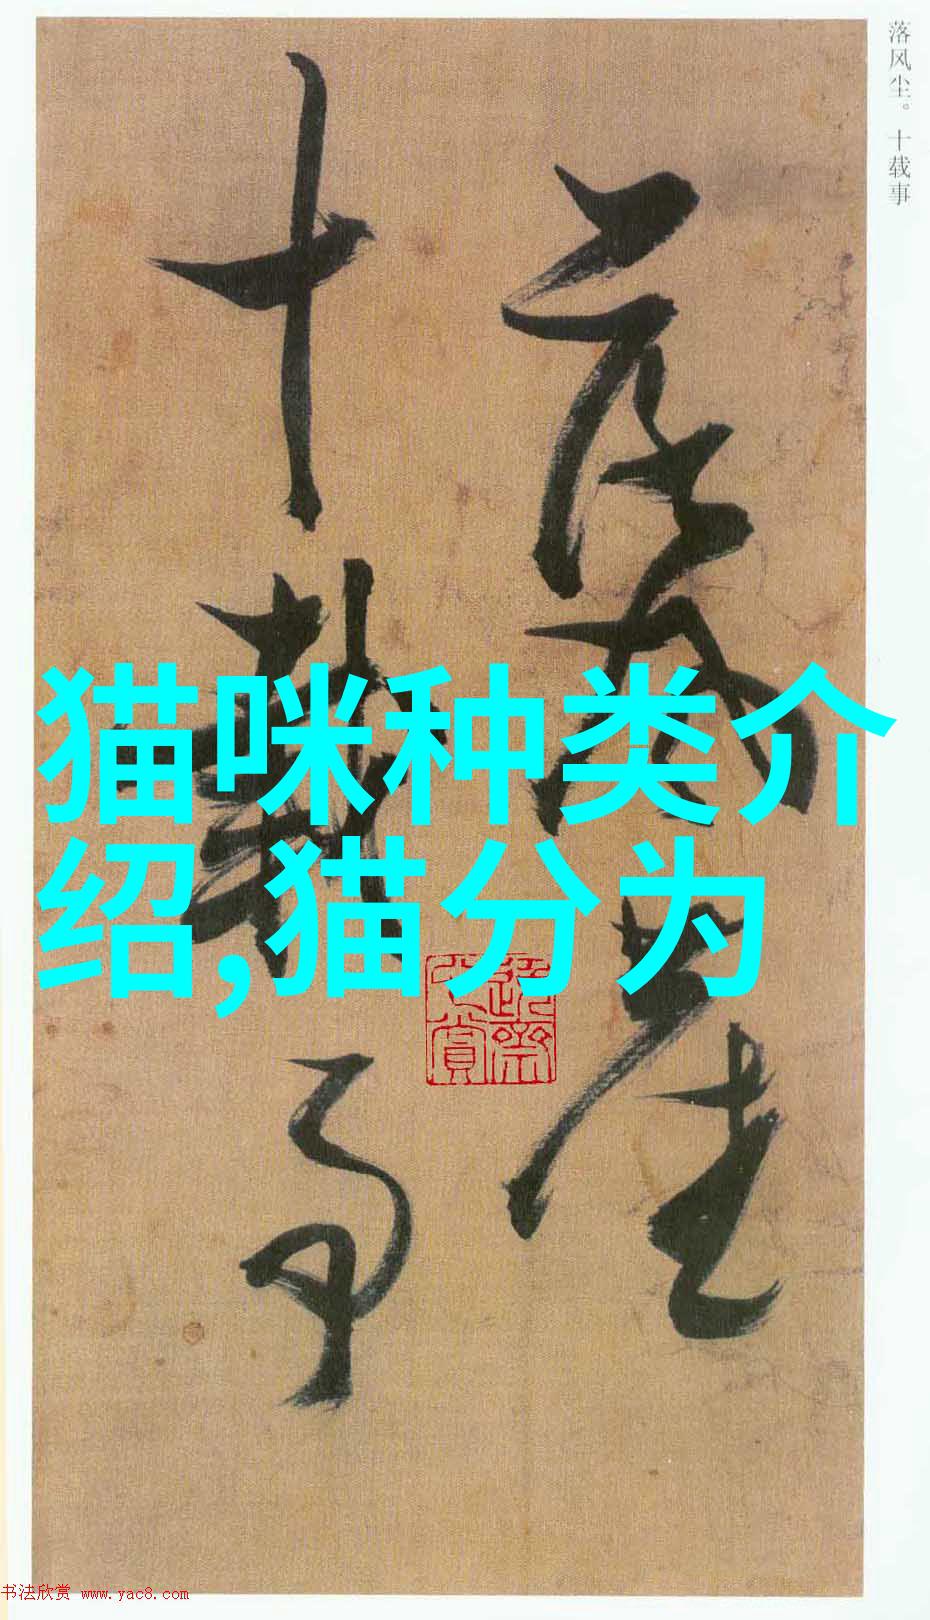 落风尘。十载事
落风尘
十载事
猫咪种类介
绍,猫分为
书法欣赏 www.yac8.com